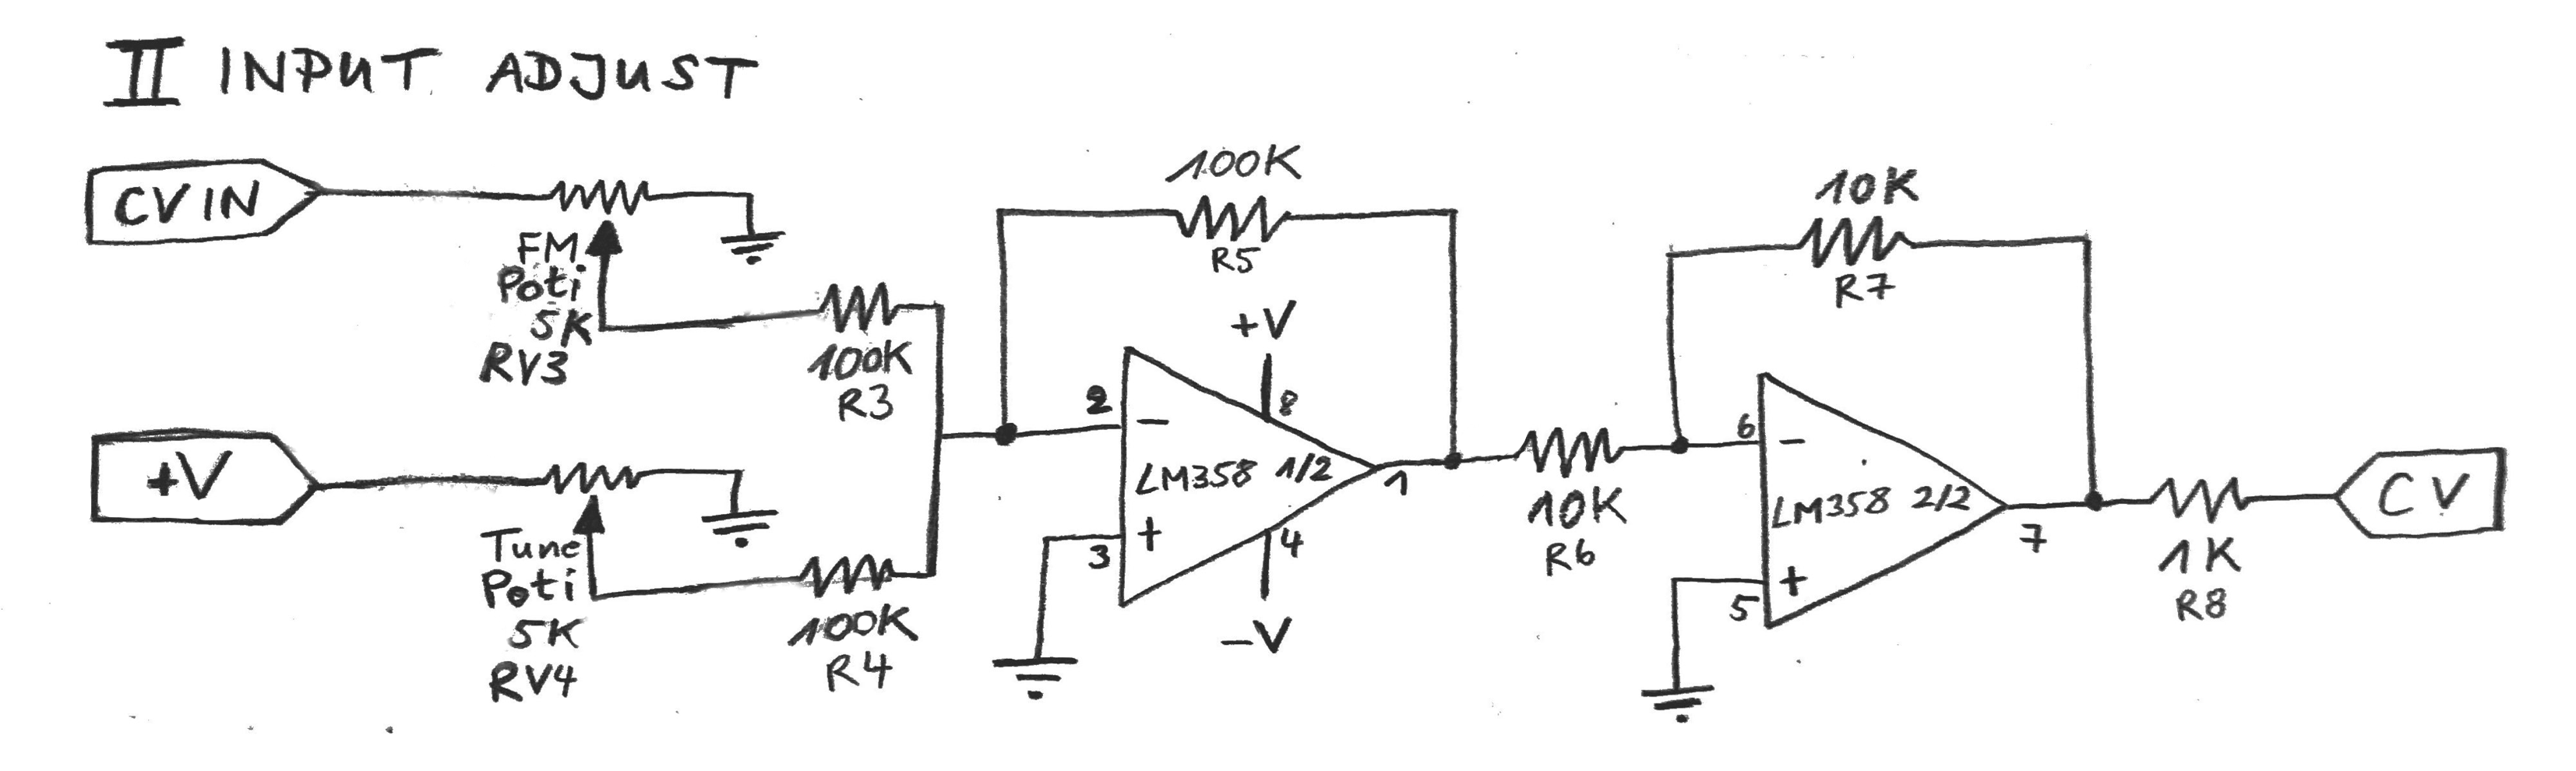 II INPUT ADJUST
CV IN
FM
Poti
5K
RV3
100K
R3
+V
Tune
Poti
5K
RV4
100K
R4
100K
R5
+V
8
2
−
LM358 1/2
1
+
3
4
−V
10K
R6
10K
R7
6
−
LM358 2/2
7
+
5
1K
R8
CV